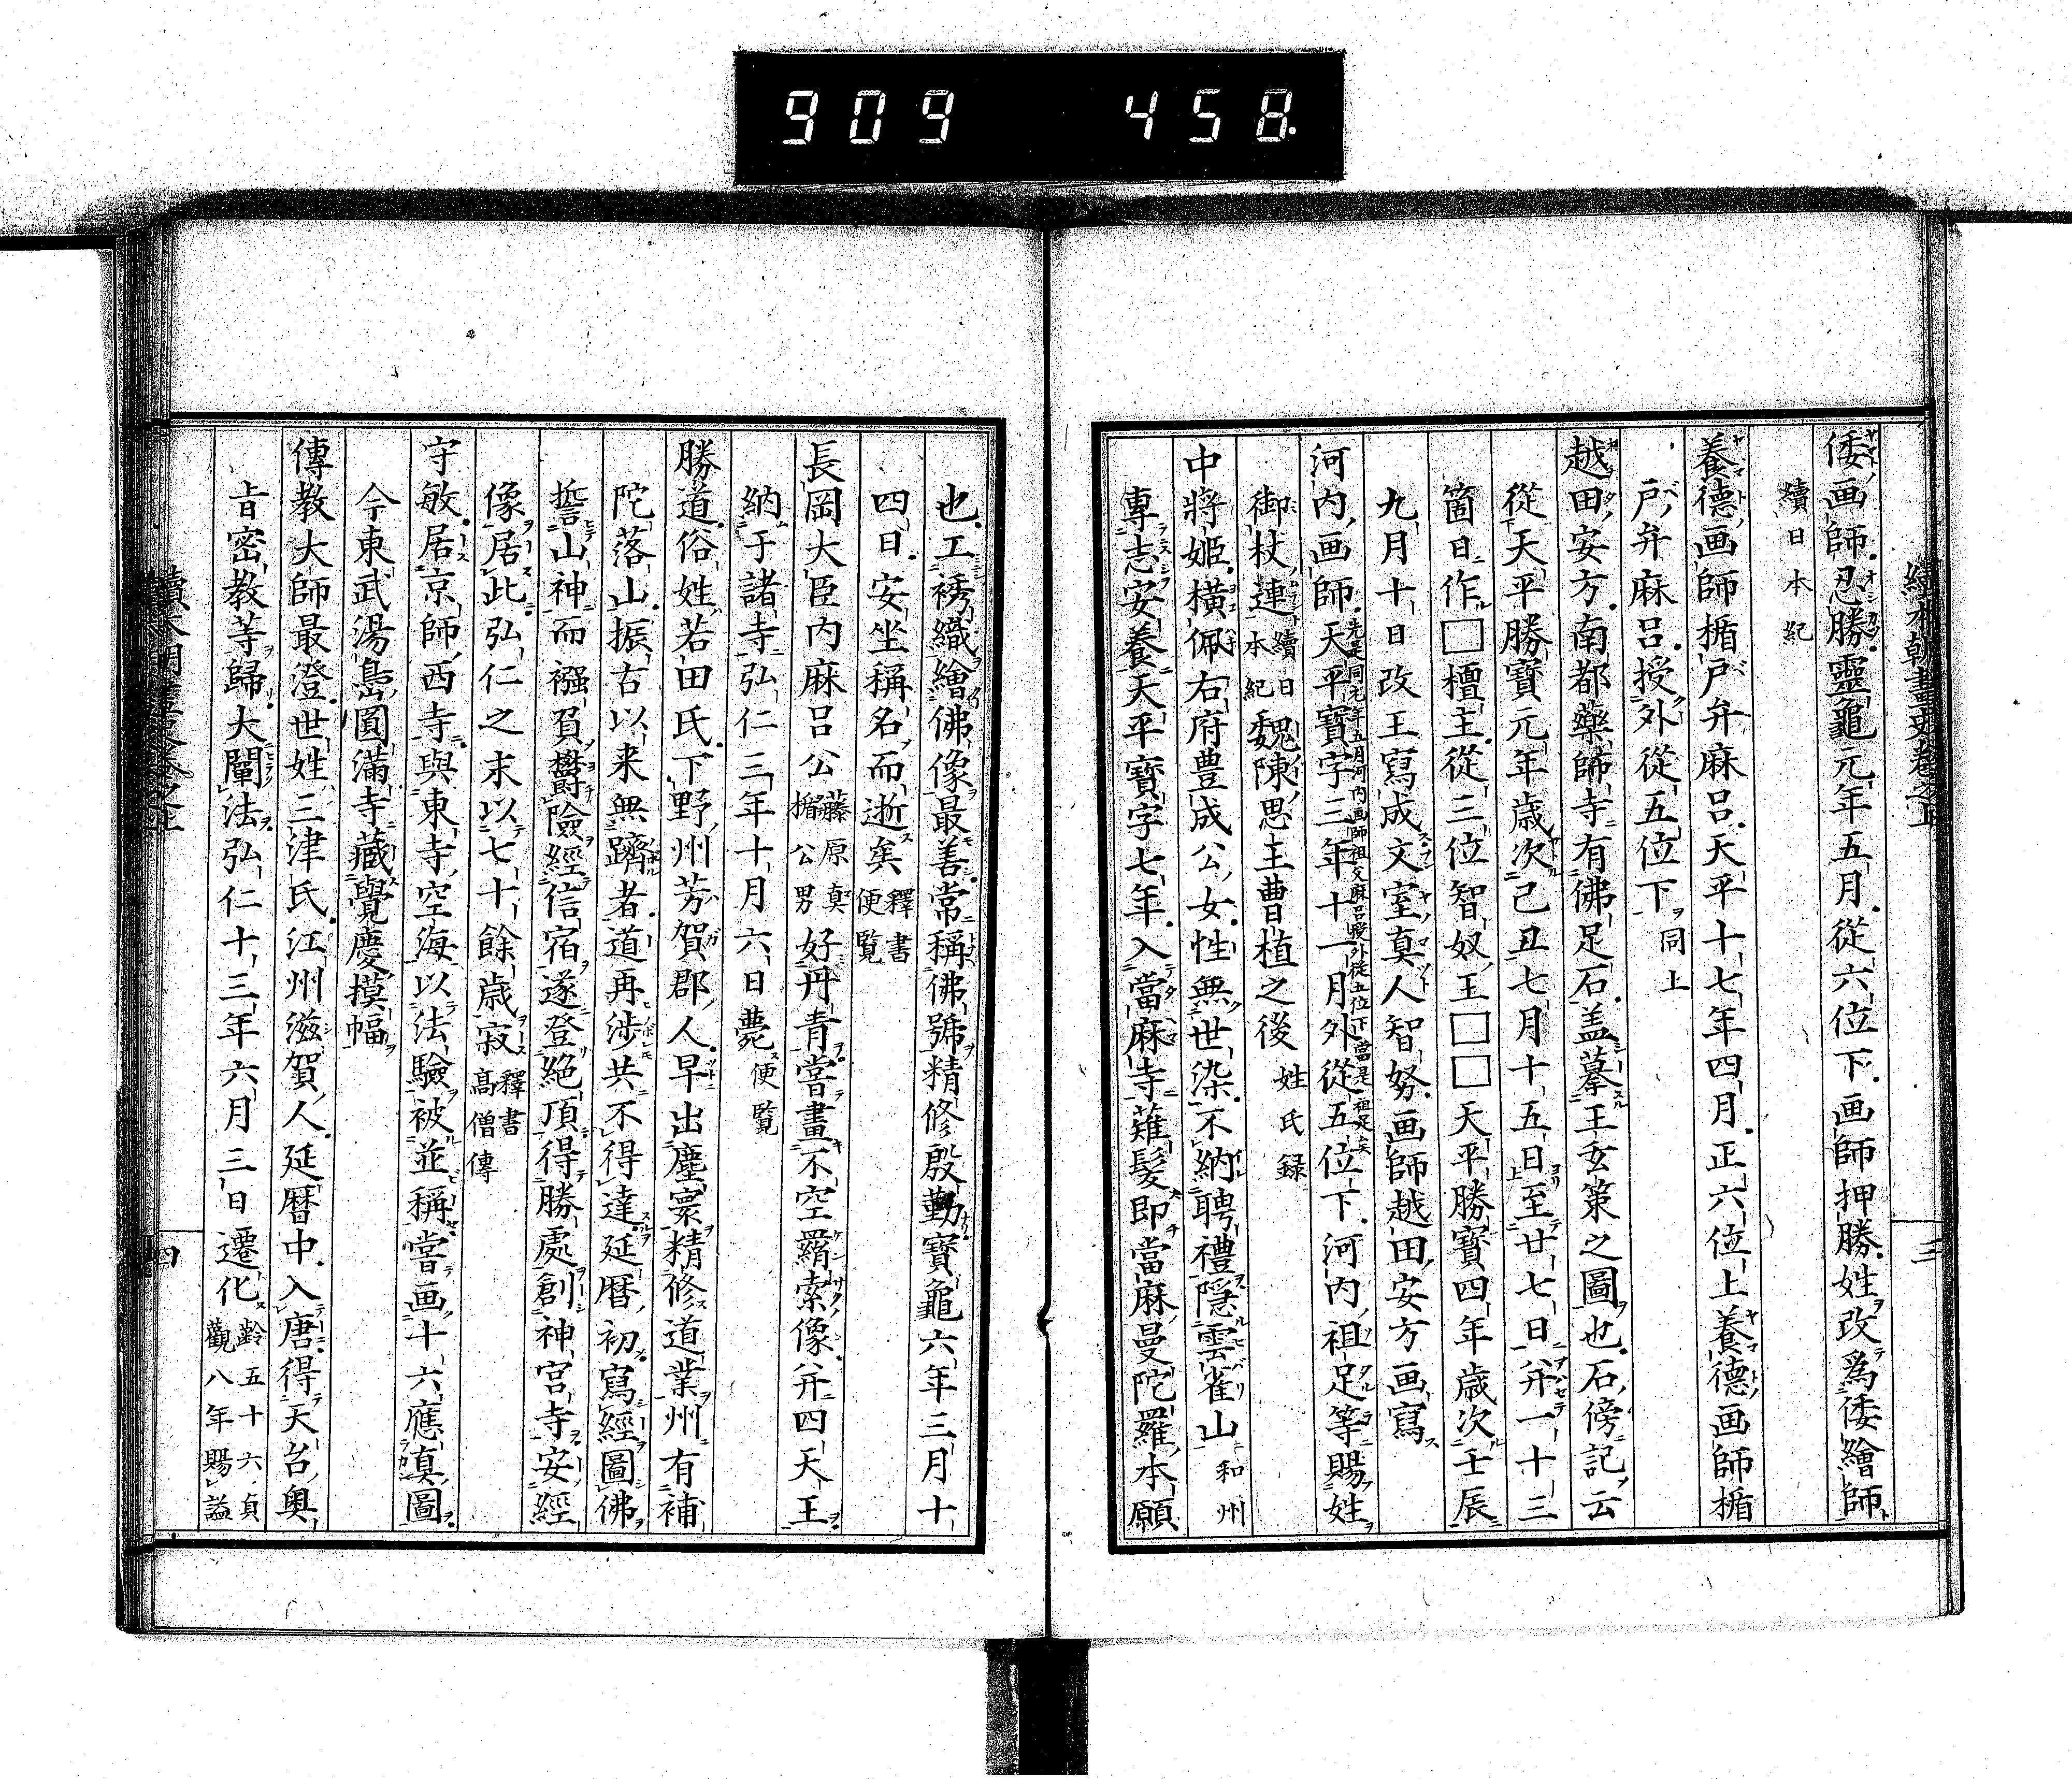 909 458.
續本朝畫史卷之上
三
倭画師忍勝靈龜元年五月從六位下画師押勝姓改爲倭繪師
續日本紀
養德画師楯戸弁麻呂天平十七年四月正六位上養德画師楯
戸弁麻呂授外從五位下同上
越田安方南都藥師寺有佛足石盖摹王玄策之圖也石傍記云
從天平勝寶元年歳次己丑七月十五日至廿七日并一十三
箇日作□檀主從三位智奴王□□天平勝寶四年歳次壬辰
九月十日改王寫成文室真人智努画師越田安方画寫
河内画師先是同元年五月河内画師祖父麻呂授外從五位下當是祖足矣天平寶字三年十一月外從五位下河内祖足等賜姓
御杖連續日本紀魏陳思王曹植之後姓氏録
中將姬橫佩右府豊成公女性無世染不納聘禮隱雲雀山和州
專志安養天平寶字七年入當麻寺薙髮即當麻曼陀羅本願
也工䌨織繪佛像最善常稱佛號精修殷勤寶龜六年三月十
四日安坐稱名而逝矣釋書便覽
長岡大臣内麻呂公藤原真楯公男好丹青嘗畫不空羂索像并四天王
納于諸寺弘仁三年十月六日薨便覽
勝道俗姓若田氏下野州芳賀郡人早出塵寰精修道業州有補
陀落山振古以来無躋者道再渉共不得達延暦初寫經圖佛
誓山神而襁負欝險經信宿遂登絶頂得勝處創神宮寺安經
像居此弘仁之末以七十餘歳寂釋書髙僧傳
守敏居京師西寺與東寺空海以法驗被並稱嘗画十六應真圖
今東武湯島圓滿寺藏覺慶摸幅
傳教大師最澄世姓三津氏江州滋賀人延暦中入唐得天台奥
旨密教等歸大闡法弘仁十三年六月三日遷化齡五十六貞觀八年賜謚
四